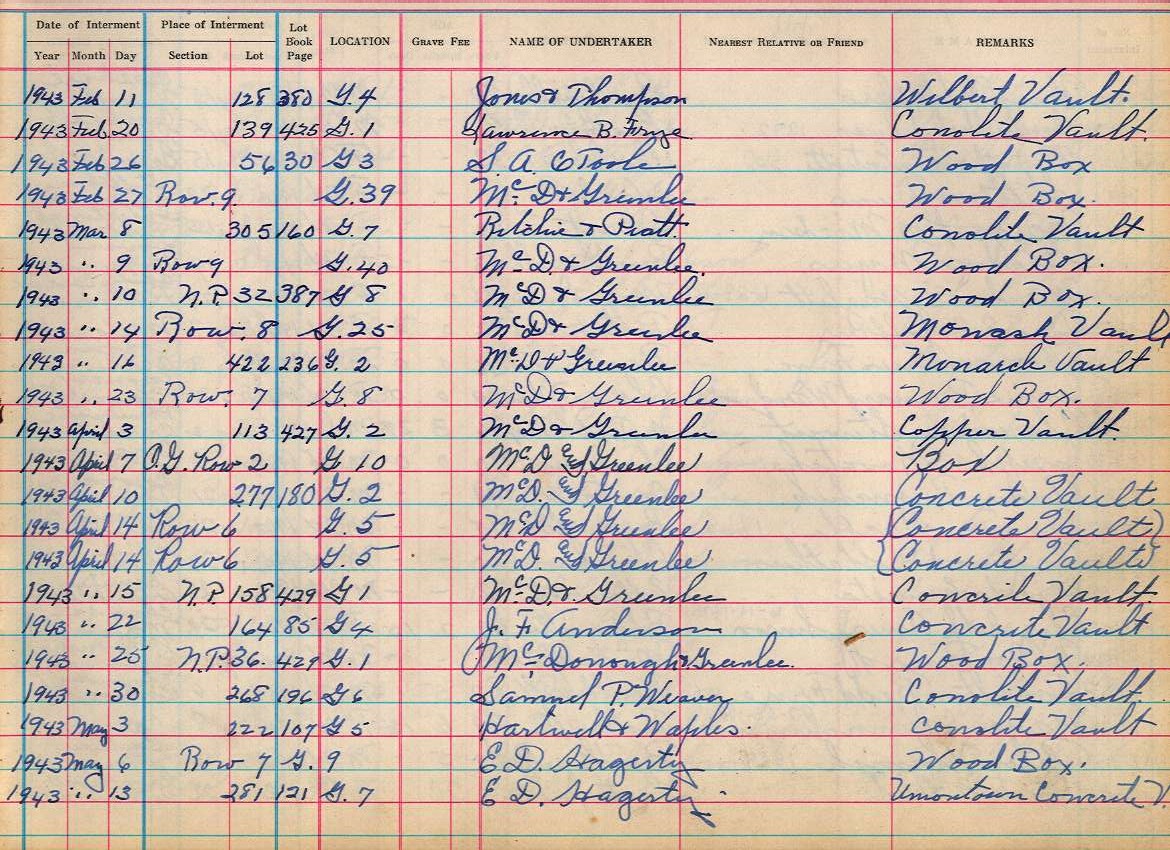 Date of Interment Place of Interment Lot Book Page LOCATION GRAVE FEE NAME OF UNDERTAKER NEAREST RELATIVE OR FRIEND REMARKS
Year Month Day Section Lot
1943 Feb 11 128 380 G. 4 Jones & Thompson Wilbert Vault.
1943 Feb 20 139 425 G. 1 Lawrence B. Conolite Vault.
1943 Feb 26 56 30 G 3 S. A. O'Toole Wood Box
1943 Feb 27 Row. 9. G. 39 McD & Greenlee Wood Box.
1943 Mar 8 305 160 G. 7 Ritchie & Piatt Conolite Vault
1943 " 9 Row 9 G. 40 McD. & Greenlee. Wood Box.
1943 " 10 N.P. 32 387 G 8 McD & Greenlee Wood Box.
1943 " 14 Row. 8 G. 25 McD & Greenlee Monark Vault
1943 " 16 422 236 G. 2 McD & Greenlee Monarch Vault
1943 " 23 Row. 7 G. 8 McD & Greenlee Wood Box.
1943 April 3 113 427 G. 2 McD & Greenlee Copper Vault.
1943 April 7 O.G. Row 2 G. 10 McD. and Greenlee Box
1943 April 10 277 180 G. 2 McD. and Greenlee Concrete Vault
1943 April 14 Row 6 G. 5 McD. and Greenlee {Concrete Vault}
1943 April 14 Row 6 G. 5 McD. and Greenlee {Concrete Vault}
1943 " 15 N.P. 158 429 G 1 McD. & Greenlee Concrete Vault
1943 " 22 164 85 G 4 J. F. Anderson Concrete Vault
1943 " 25 N.P. 36. 429 G. 1 McDonough & Greenlee. Wood Box.
1943 " 30 268 196 G 6 Samuel P. Weaver Conolite Vault.
1943 May 3 222 107 G 5 Hartwell & Waples. Conolite Vault
1943 May 6 Row 7 G. 9 E. D. Hagerty Wood Box.
1943 " 13 281 121 G. 7 E. D. Hagerty Uniontown Concrete V.